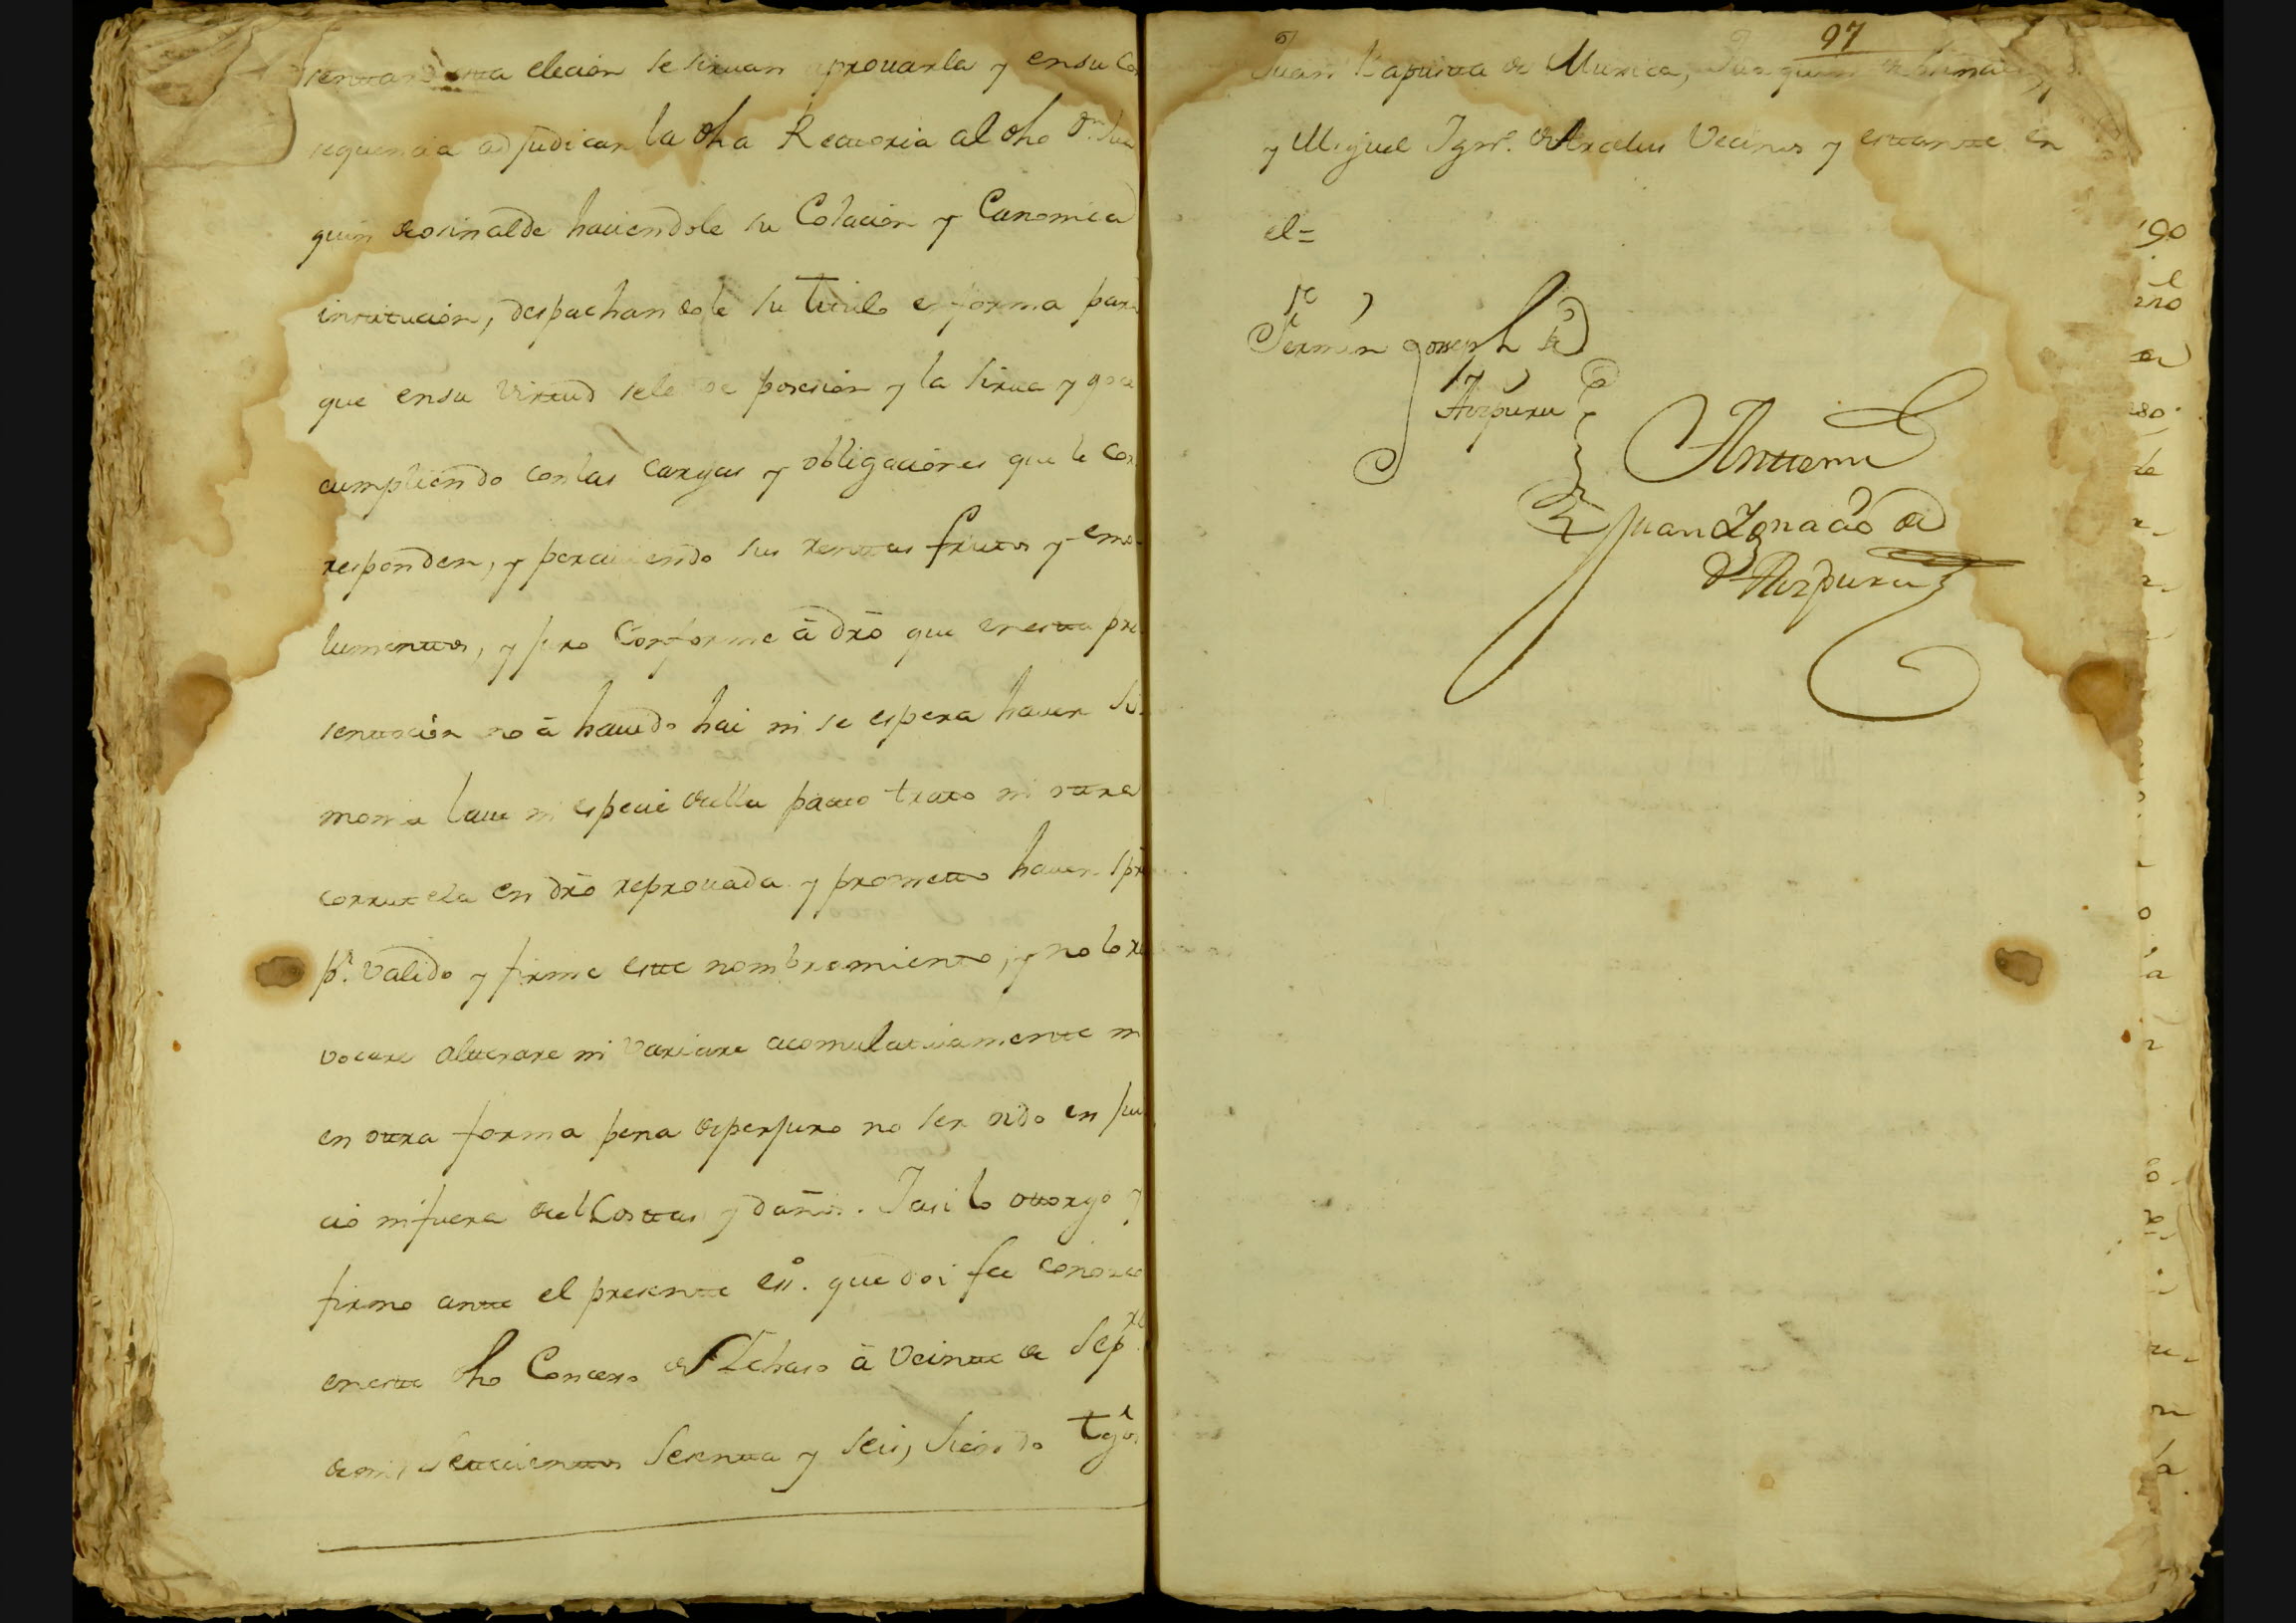 sentando esta elecion se siruan aprouarla y ensu Con
sequencia adjudicar la dha Rectoria al dho Dn. Joa
quin de osinalde haciendole su Colacion y Canonica
institucion, despachandole su titulo enforma para
que ensu virtud sele de posesion y la sirua y goce
cumpliendo conlas cargas y obligaciones que le Cor
responden, y perciuiendo sus rentas frutos y emo-
lumentos, y juro Conforme â dro que enesta pre
sentacion no â hauido hai ni se espera hauer Si
monia laue ni especie della pacto trato ni otra
corrutela en dro reprouada y prometto hauer spre
pr. valido y firme este nombramiento, y no lo re
vocare alterare ni variare acomulatiuamente ni
en otra forma pena de perjuro no ser oido en jui
cio nifuera del Costas y daños. Iasi lo otorgo y
firmo ante el presente essno. que doi fee conozco
eneste dho Concexo de à veinte de Sepre
demil setecientos sesenta y seis, siendo tgos
97
Juan Baptista de Muxica,
y Miguel Ignº. de Arcelus Vecinos y estante en
el=
Fermin Joseph de
Aizpuru
Antemi
Juan Ignacio de
Aizpuru